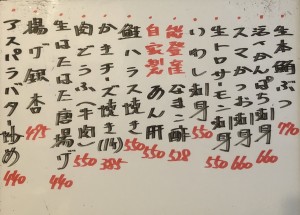 生本鮪ぶつ 770
活〆かんぱち刺身 660
スマかつお刺身 660
生トロサーモン刺身 550
いわし刺身 550
能登産なまこ酢 528
自家製あん肝 550
鮭ハラス焼き 550
かきチーズ焼き(1ヶ) 385
肉どうふ(牛肉) 550
生はたはた唐揚げ 440
揚げ銀杏 495
アスパラバター炒め 440